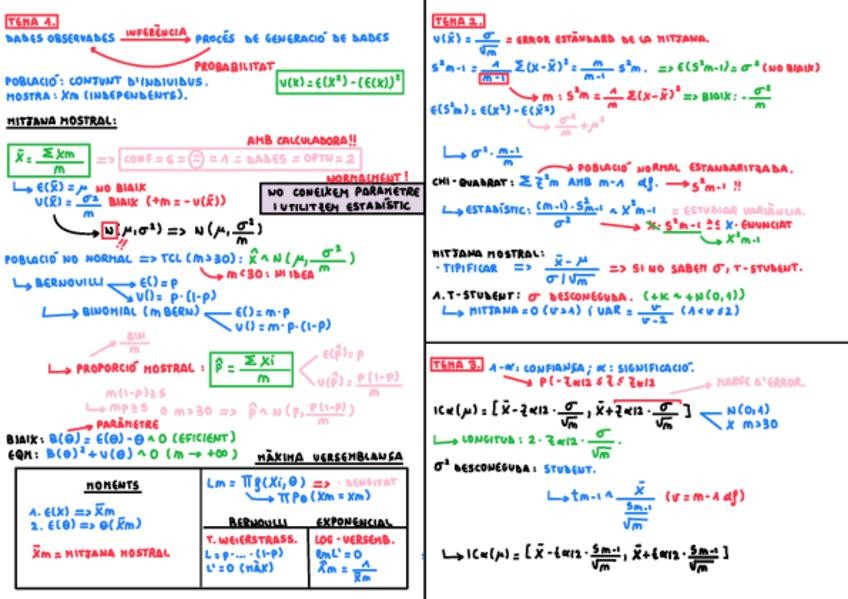 TEMA 1.
DADES OBSERVADES INFERÈNCIA PROCÉS DE GENERACIÓ DE DADES
PROBABILITAT
POBLACIÓ: CONJUNT D'INDIVIDUS.
MOSTRA: Xm (INDEPENDENTS).
V(X)=E(X²)-(E(X))²
MITJANA MOSTRAL:
AMB CALCULADORA!!
x̄ = ΣXm/m => CONF = 6 = ⊖ = 1 = DADES = OPTN = 2
NORMALMENT!
NO CONEIXEM PARÀMETRE
I UTILITZEM ESTADÍSTIC
E(x̄) = μ NO BIAIX
V(x̄) = σ²/m BIAIX (+m = -V(x̄))
N(μ,σ²) => N(μ, σ²/m)
!!
POBLACIÓ NO NORMAL => TCL (m>30): x̂ ~ N(μ, σ²/m)
m<30: NI IDEA
BERNOUILLI E() = P
V() = P·(1-P)
BINOMIAL (m BERN) E() = m·P
V() = m·P·(1-P)
BIN/m
PROPORCIÓ MOSTRAL: p̂ = ΣXi/m
E(p̂) = P
V(p̂) = P(1-P)/m
m(1-P)≥5
mP≥5 O m>30 => p̂ ~ N(P, P(1-P)/m)
PARÀMETRE
BIAIX: B(θ) = E(θ) - θ ~ 0 (EFICIENT)
EQM: B(θ)² + V(θ) ~ 0 (m → +∞)
MÀXIMA VERSEMBLANSA
MOMENTS
1. E(X) => X̄m
2. E(θ) => θ(X̄m)
X̄m = MITJANA MOSTRAL
Lm = Πf(Xi, θ) => DENSITAT
ΠPθ (Xm = xm)
BERNOULLI
T. WEIERSTRASS.
L = P····(1-P)
L' = 0 (MÀX)
EXPONENCIAL
LOG-VERSEMB.
lmL' = 0
λ̂m = 1/X̄m
TEMA 2.
V(x̄) = σ/√m = ERROR ESTÀNDARD DE LA MITJANA.
S²m-1 = 1/m-1 Σ(X-x̄)² = m/m-1 S²m. => E(S²m-1) = σ² (NO BIAIX)
m: S²m = 1/m Σ(X-x̄)² => BIAIX: -σ²/m
E(S²m) = E(X²) - E(x̄²)
σ²/m + μ²
σ²·m-1/m
POBLACIÓ NORMAL ESTANDARITZADA.
CHI-QUADRAT: ΣZ²m AMB m-1 df. S²m-1 !!
ESTADÍSTIC: (m-1)·S²m-1/σ² ~ X²m-1 = ESTUDIAR VARIÀNCIA.
X·S²m-1 ≥≤ X·ENUNCIAT
X²m-1
MITJANA MOSTRAL:
·TIPIFICAR => x̄-μ/σ/√m => SI NO SABEM σ, T-STUDENT.
1. T-STUDENT: σ DESCONEGUDA. (+K ~ +N(0,1))
MITJANA = 0 (v>1) I VAR = v/v-2 (1<v≤2)
TEMA 3.
1-α: CONFIANSA; α: SIGNIFICACIÓ.
P(-Zα/2 ≤ Z ≤ Zα/2
MARGE D'ERROR.
ICα(μ) = [x̄-Zα/2·σ/√m, x̄+Zα/2·σ/√m]
N(0,1)
X m>30
LONGITUD: 2·Zα/2·σ/√m.
σ² DESCONEGUDA: STUDENT.
tm-1 ~ x̄/Sm-1/√m (v = m-1 df)
ICα(μ) = [x̄-tα/2·Sm-1/√m, x̄+tα/2·Sm-1/√m]